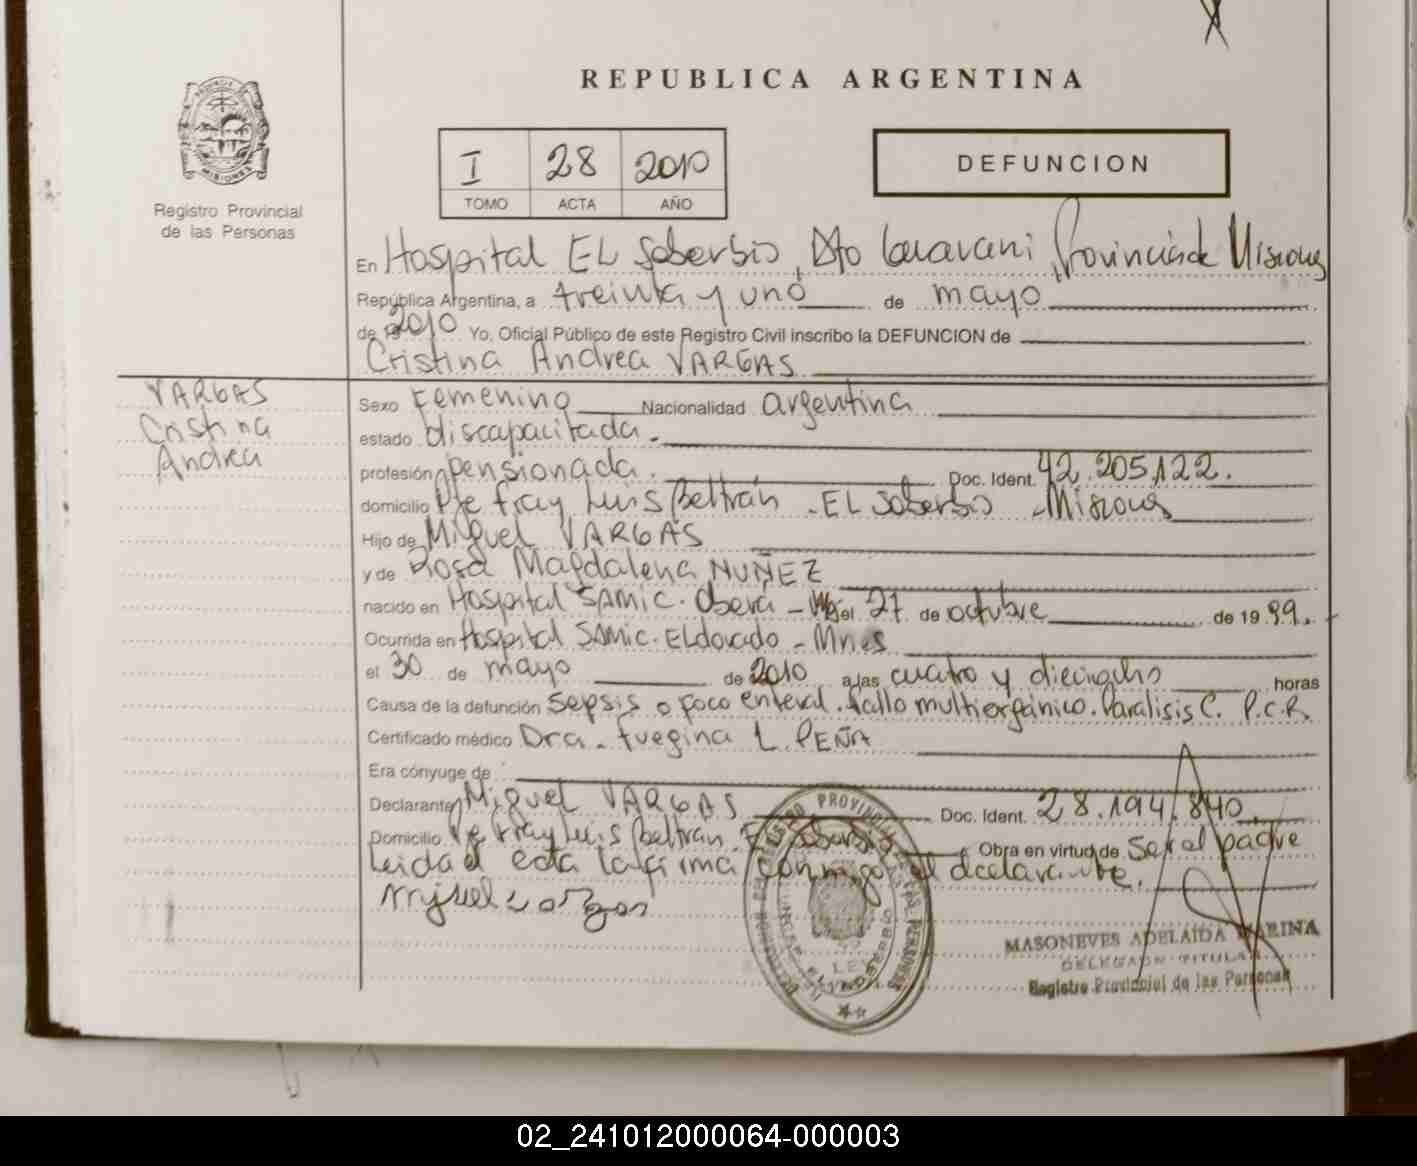 REPUBLICA ARGENTINA
PROVINCIA DE
MISIONES
Registro Provincial
de las Personas
I 28 2010
TOMO ACTA AÑO
DEFUNCION
En Hospital EL Soberbio, Dto Guarani Provincia de Misiones
República Argentina, a treinta y uno de mayo
de 2010 Yo, Oficial Público de este Registro Civil inscribo la DEFUNCION de
Cristina Andrea VARGAS
VARGAS
Cristina
Andrea
Sexo Femenino Nacionalidad argentina
estado discapacitada.
profesión pensionada. Doc. Ident. 42.205.122.
domicilio Pje Fray Luis Beltrán - EL Soberbio - Misiones
Hijo de Miguel VARGAS
y de Rosa Magdalena NUÑEZ
nacido en Hospital SAMIC. Oberá - el 27 de octubre de 19 99.
Ocurrida en Hospital SAMIC. ELdorado - Mnes
el 30 de mayo de 2010 a las cuatro y dieciocho horas
Causa de la defunción Sepsis a foco enteral. fallo multiorgánico. Paralisis C. P.C.R.
Certificado médico Dra. L. PEÑA
Era cónyuge de
Declarante Miguel VARGAS Doc. Ident. 28.194.840
Domicilio Pje Fray Luis Beltrán. El Soberbio Obra en virtud de Ser el padre
Leida el acta la firma conmigo el declarante.
Miguel Vargas
MASONEVES ADELAIDA MARINA
DELEGADA TITULAR
Registro Provincial de las Personas
02_241012000064-000003